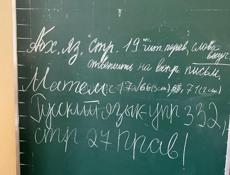 Абх. яз. стр. 19 чит. перев., слова выуч.
ответить на вопр. письм.
Матем.
Русский язык упр 332,
стр 27 прав